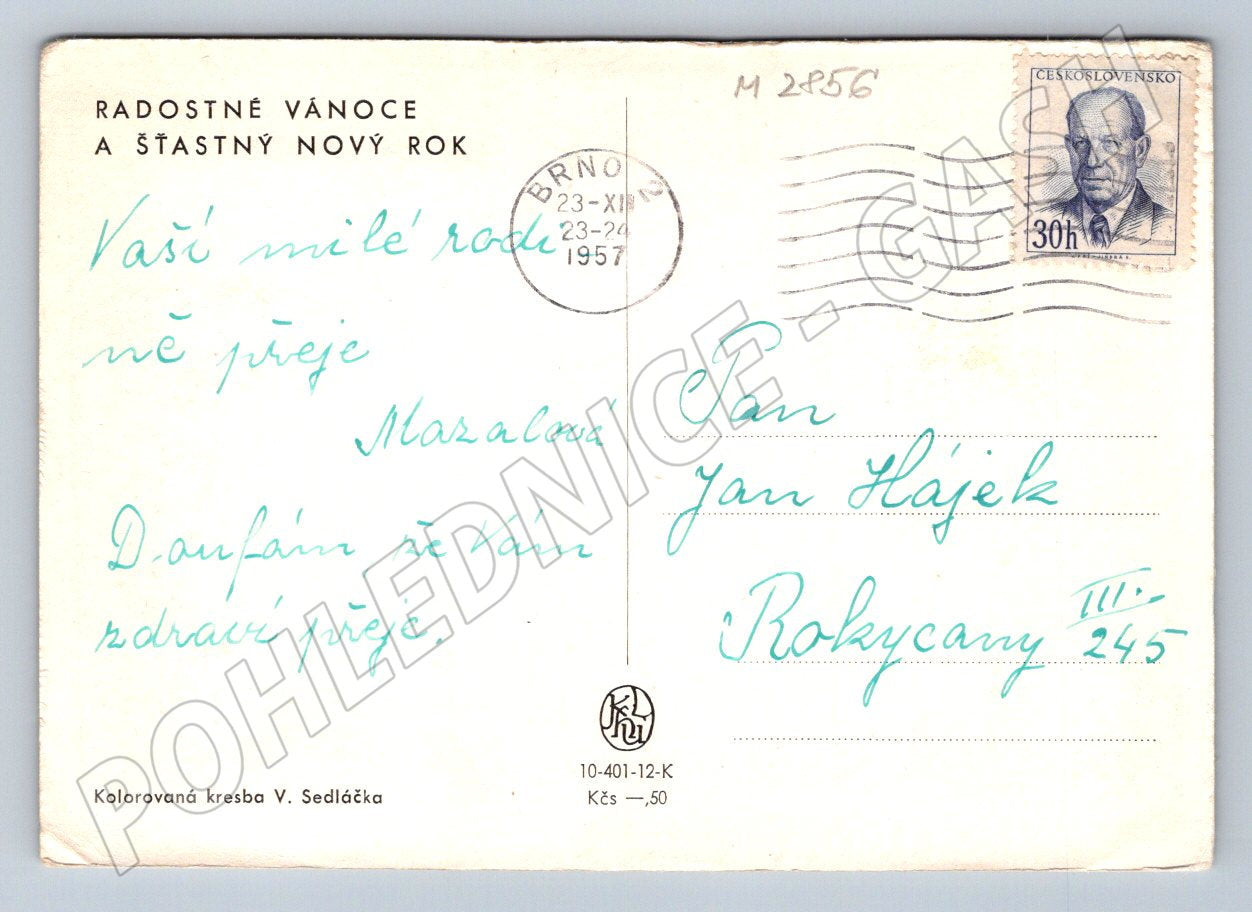 M 2856
RADOSTNÉ VÁNOCE
A ŠŤASTNÝ NOVÝ ROK
ČESKOSLOVENSKO
30h
BRNO 2
23-XII
23-24
1957
Vaší milé rodi
ně přeje
Mazalová
Doufám, že Vám
zdraví přeje.
Pan
Jan Hájek
Rokycany III.
245
10-401-12-K
Kčs —,50
Kolorovaná kresba V. Sedláčka
POHLEDNICE - GASH